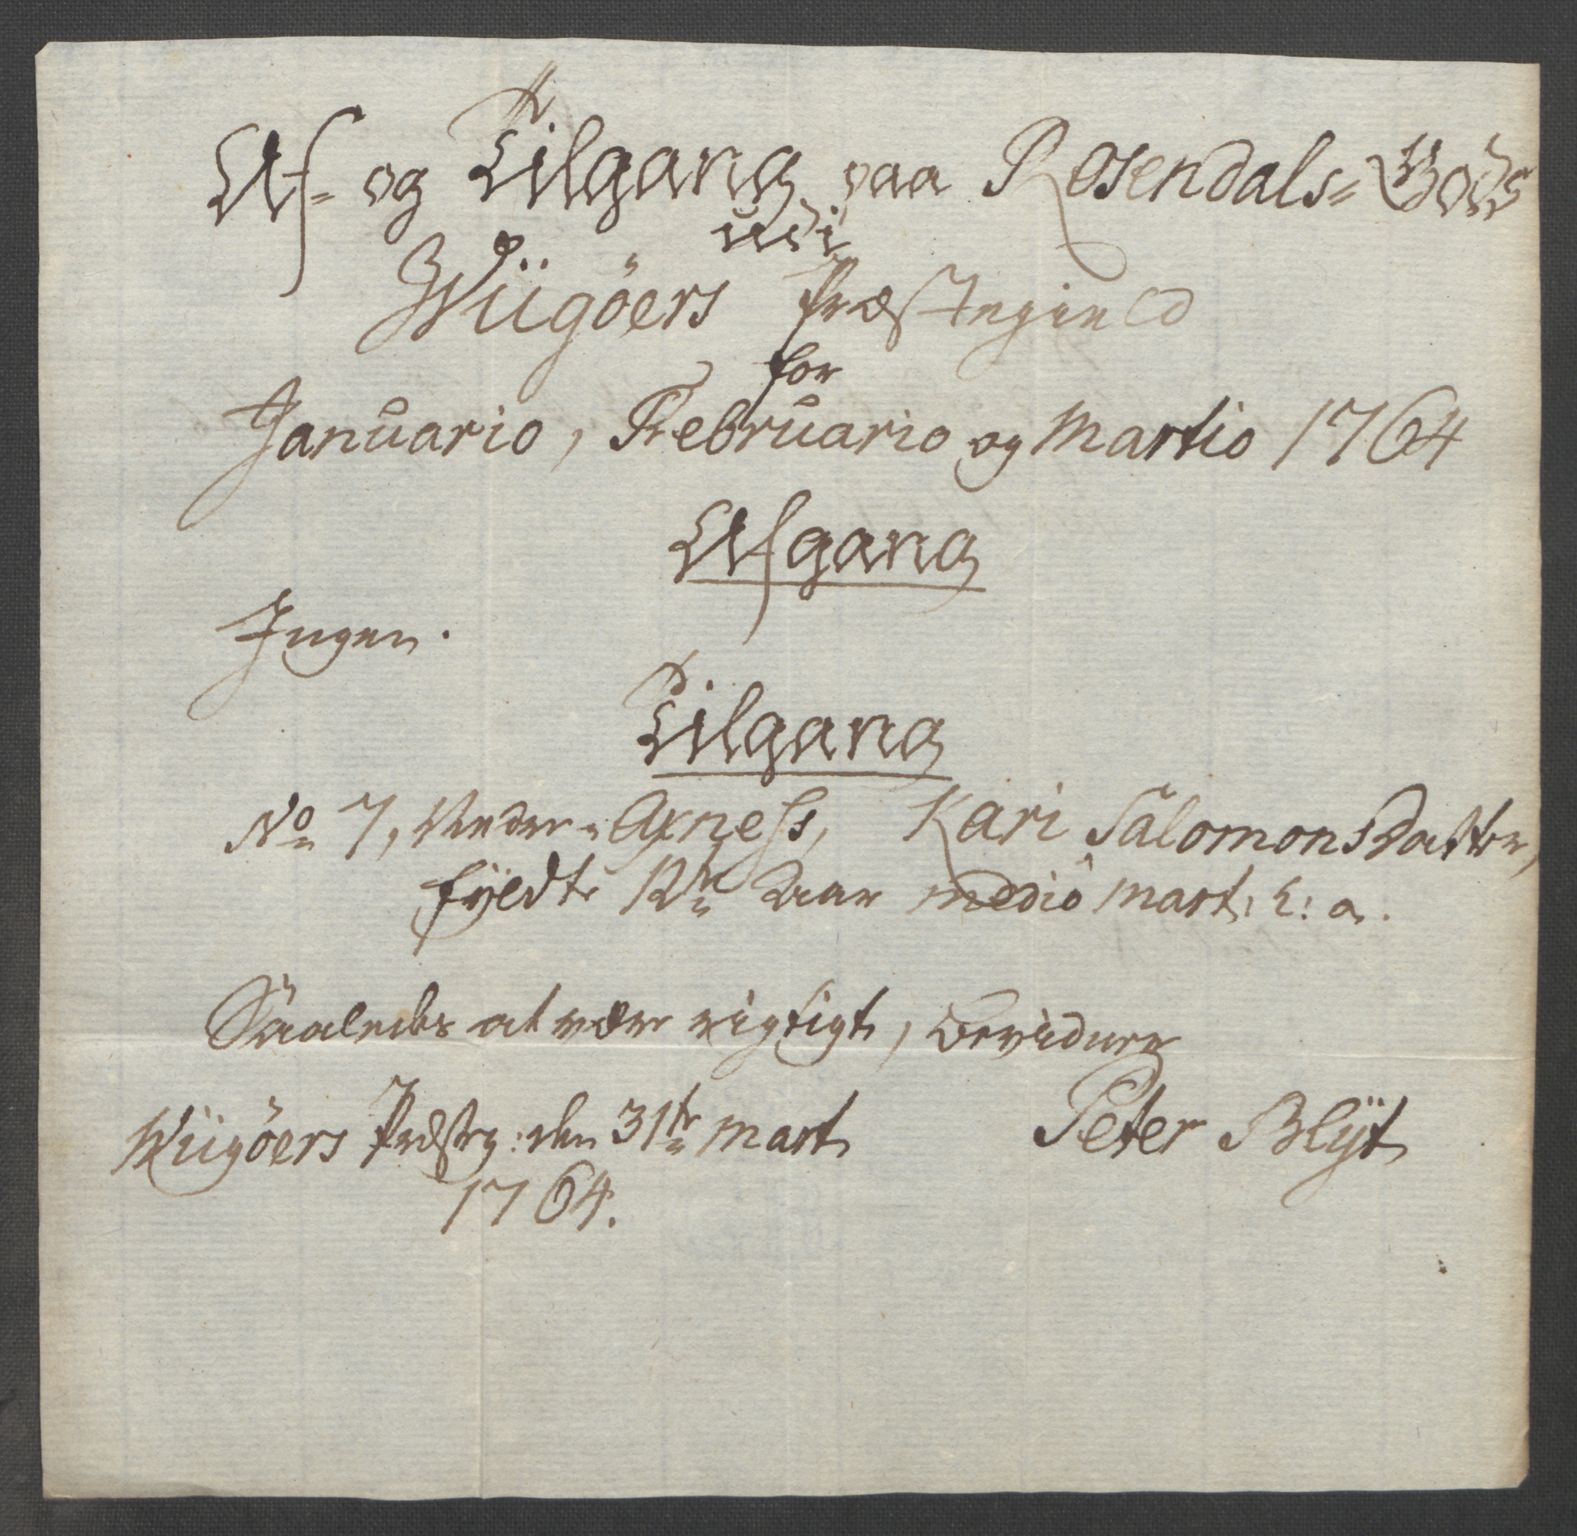 Af- og Tilgang paa Rosendals- Gods
udi
Wiigöers Præstegield
for
Januario, Februario og Martio 1764
Afgang
Ingen.
Tilgang
No 7, Neder-Axness, Kari Salomons Datter,
fÿldte 12te Aar mediô Mart: h: a.
Saaledes at være rigtigt, bevidner
Wiigöers Præsteg: den 31te Mart Peter Blÿt
1764.